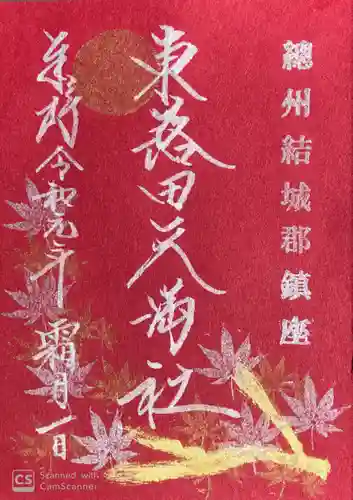 總州結城郡鎮座
東蕗田天満社
奉拝令和元年霜月一日
CS Scanned with
CamScanner